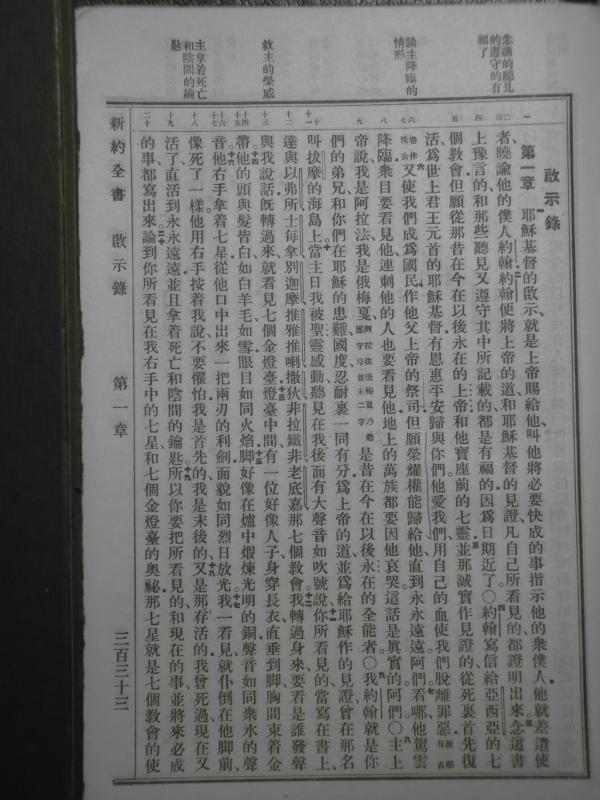 念誦的聽見
的遵守的有
福了
論主降臨的
情形
救主的榮威
主拿着死亡
和陰間的鑰
匙
啟示錄
第一章 耶穌基督的啟示、就是上帝賜給他、叫他將必要快成的事指示他的衆僕人、他就差遣使
者、曉諭他的僕人約翰、約翰便將上帝的道和耶穌基督的見證、凡自己所看見的、都證明出來、念這書
上豫言的、和那些聽見又遵守其中所記載的、都是有福的、因爲日期近了。○約翰寫信給亞西亞的七
個教會、但願從那昔在今在以後永在的上帝、和他寶座前的七靈、並那誠實作見證的、從死裏首先復
活、爲世上君王元首的耶穌基督、有恩惠平安歸與你們、他愛我們、用自己的血使我們脫離罪惡、
又使我們成爲國民、作他父上帝的祭司、但願榮耀權能歸給他、直到永永遠遠、阿們。看哪、他駕雲
降臨、衆目要看見他、連刺他的人也要看見他、地上的萬族都要因他哀哭、這話是眞實的、阿們。○主上
帝說、我是阿拉法、我是俄梅戛、是昔在今在以後永在的全能者。○我約翰就是你
們的弟兄、和你們在耶穌的患難國度忍耐裏一同有分、爲上帝的道、並爲給耶穌作的見證、曾在那名
叫拔摩的海島上、當主日我被聖靈感動、聽見在我後面有大聲音如吹號、說、你所看見的、當寫在書上、
達與以弗所、士每拿、別迦摩、推雅推喇、撒狄、非拉鐵非、老底嘉、那七個教會、我轉過身來、要看是誰發聲
與我說話、旣轉過來、就看見七個金燈臺、燈臺中間、有一位好像人子、身穿長衣、直垂到脚、胸間束着金
帶、他的頭與髮皆白、如白羊毛、如雪、眼目如同火焰、脚好像在爐中煅煉光明的銅、聲音如同衆水的聲
音、他右手拿着七星、從他口中出來一把兩刃的利劍、面貌如同烈日放光、我一看見、就仆倒在他脚前、
像死了一樣、他用右手按着我說、不要懼怕、我是首先的、我是末後的、又是那存活的、我曾死過、現在又
活了、直活到永永遠遠、並且拿着死亡和陰間的鑰匙、所以你要把所看見的、和現在的事、並將來必成
的事、都寫出來、論到你所看見在我右手中的七星、和七個金燈臺的奧祕、那七星就是七個教會的使
新約全書 啟示錄 第一章 三百三十三